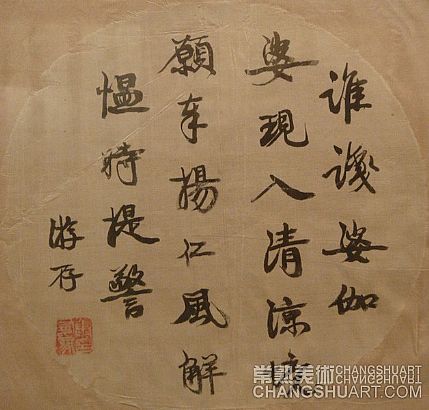 誰識婆伽
婆現入清涼境
願奉揚仁風解
慍時提警
游存
常熟美術 CHANGSHUART
CHANGSHUART.COM